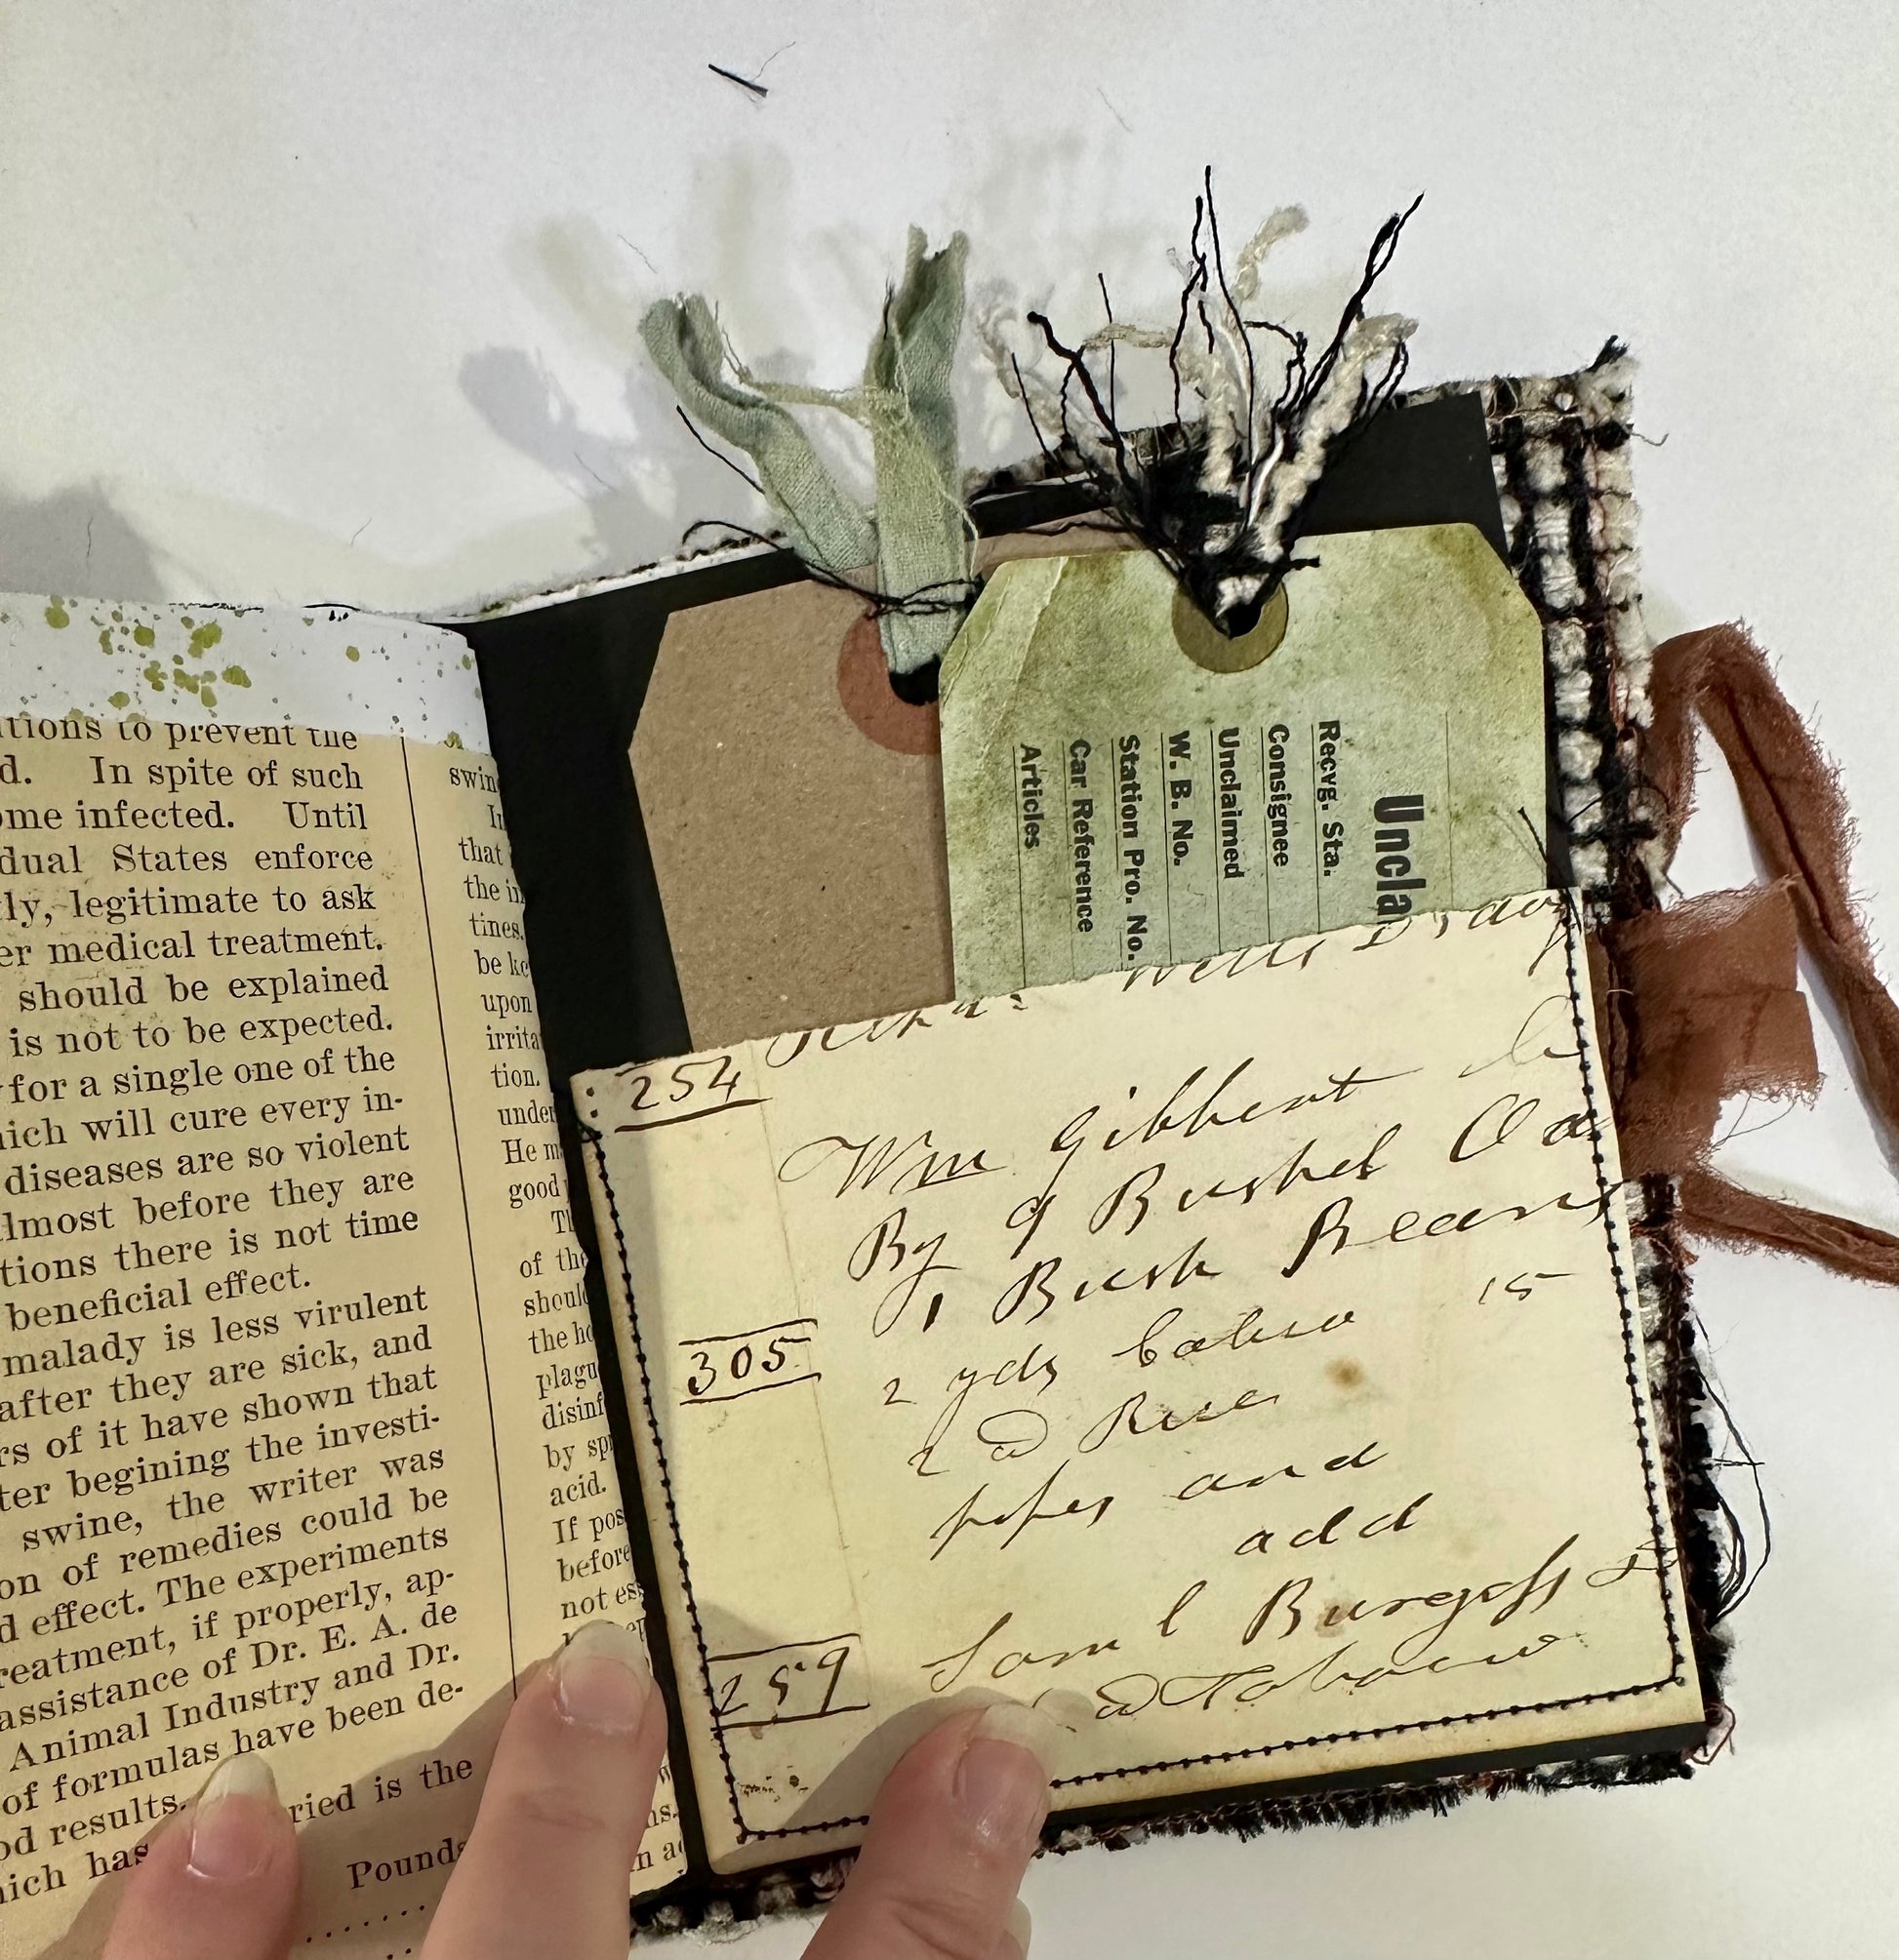 tions to prevent the
d. In spite of such
ome infected. Until
dual States enforce
tly, legitimate to ask
er medical treatment.
should be explained
is not to be expected.
for a single one of the
hich will cure every in-
diseases are so violent
lmost before they are
tions there is not time
beneficial effect.
malady is less virulent
after they are sick, and
rs of it have shown that
ter begining the investi-
swine, the writer was
on of remedies could be
d effect. The experiments
reatment, if properly, ap-
assistance of Dr. E. A. de
Animal Industry and Dr.
of formulas have been de-
od results.
hich has ried is the
Pounds
swin
In
that
the in
tines.
be ke
upon
irrita
tion.
under
He m
good
Th
of the
should
the ho
plagu
disinf
by sp
acid.
If pos
before
not es
Uncla
Recvg. Sta.
Consignee
Unclaimed
W. B. No.
Station Pro. No.
Car Reference
Articles
254
Wm Gibbert
By 9 Bushel Oa
1 Bush Beans
305 2 yds Calico 15
2 @
pipes and
add
259 Saml Burgess
Tobacco